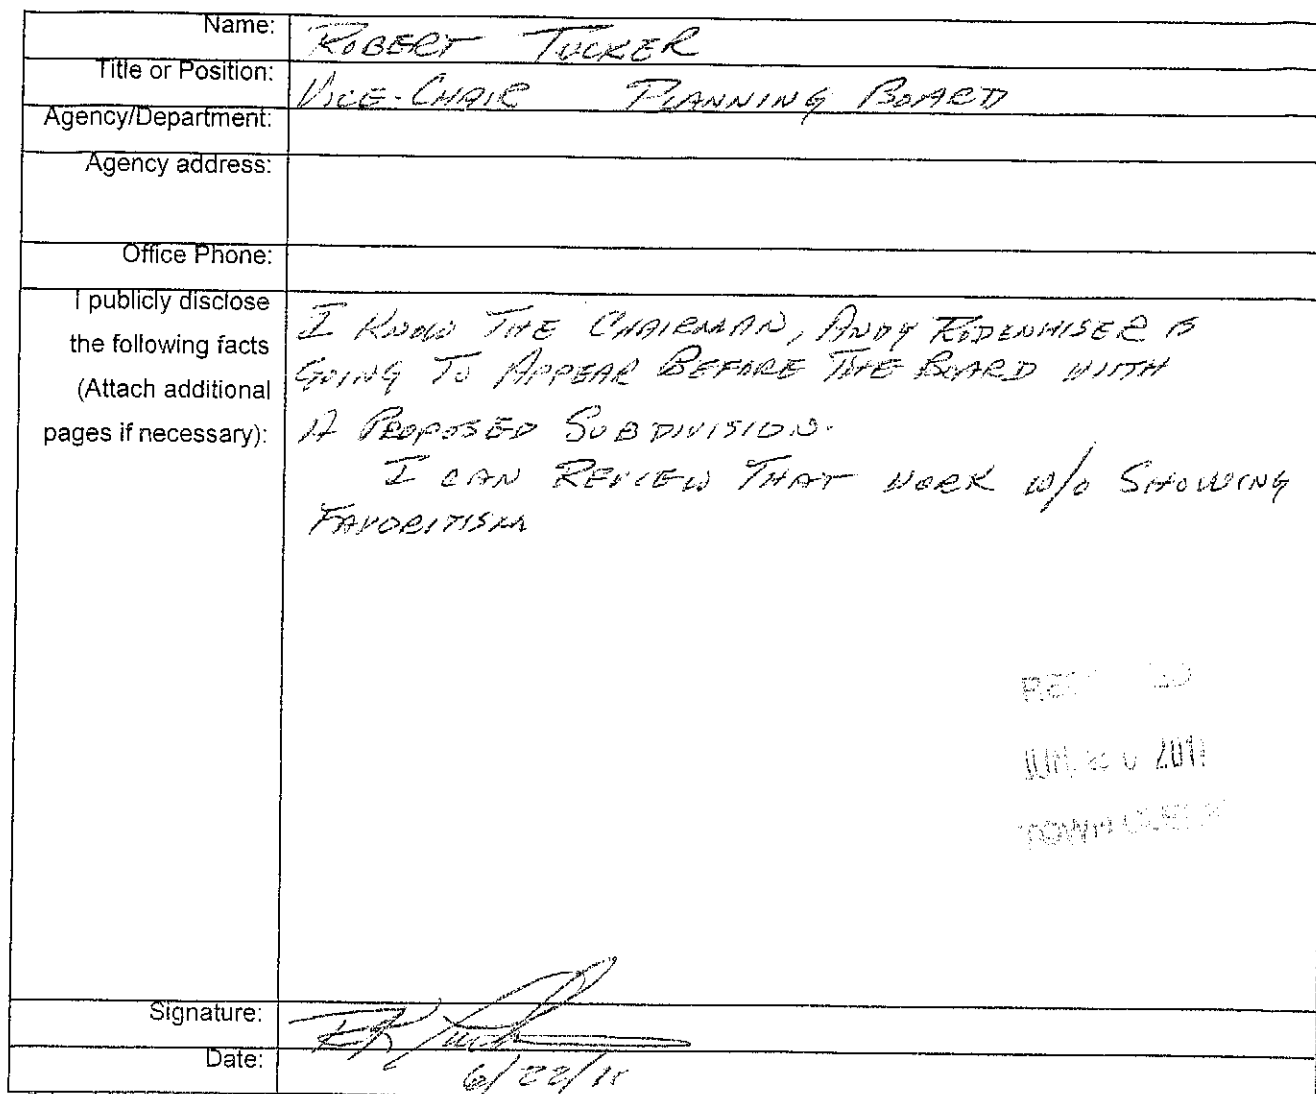 Name: ROBERT TUCKER
Title or Position: VICE-CHAIR PLANNING BOARD
Agency/Department:
Agency address:
Office Phone:
I publicly disclose
the following facts
(Attach additional
pages if necessary):
I KNOW THE CHAIRMAN, ANDY RODENHISER IS
GOING TO APPEAR BEFORE THE BOARD WITH
A PROPOSED SUBDIVISION.
I CAN REVIEW THAT WORK W/O SHOWING
FAVORITISM
TOWN CLERK
Signature:
Date: 6/22/11